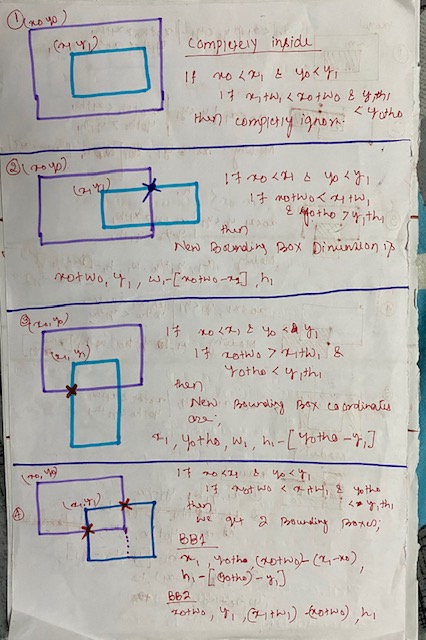 ① (x0 y0)
(x1 y1)
Completely inside
If x0 < x1 & y0 < y1
If x1+w1 < x0+w0 & y1+h1 < y0+h0
then completely ignore
② (x0 y0)
(x1 y1)
If x0 < x1 & y0 < y1
If x0+w0 < x1+w1
& y0+h0 > y1+h1
then
New Bounding Box Dimension is
x0+w0, y1, w1-[x0+w0-x1], h1
③ (x0, y0)
(x1, y1)
If x0 < x1 & y0 < y1
If x0+w0 > x1+w1 &
y0+h0 < y1+h1
then
New Bounding Box coordinates
are;
x1, y0+h0, w1, h1-[y0+h0-y1]
④
(x0, y0)
(x1, y1)
If x0 < x1 & y0 < y1
If x0+w0 < x1+w1 & y0+h0
< y1+h1
then
we get 2 Bounding Boxes;
BB1
x1, y0+h0, (x0+w0)-(x1-x0),
h1-[(y0+h0)-y1]
BB2
x0+w0, y1, (x1+w1)-(x0+w0), h1